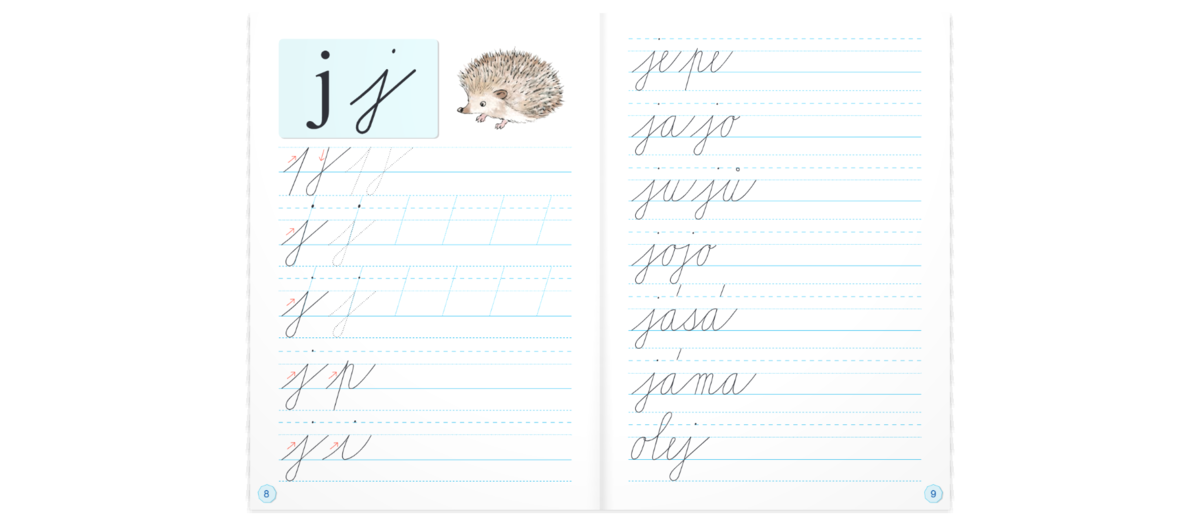 j j
j j
j j
j p
j i
8
je pe
ja jo
ju jů
jojo
jásá
jáma
olej
9